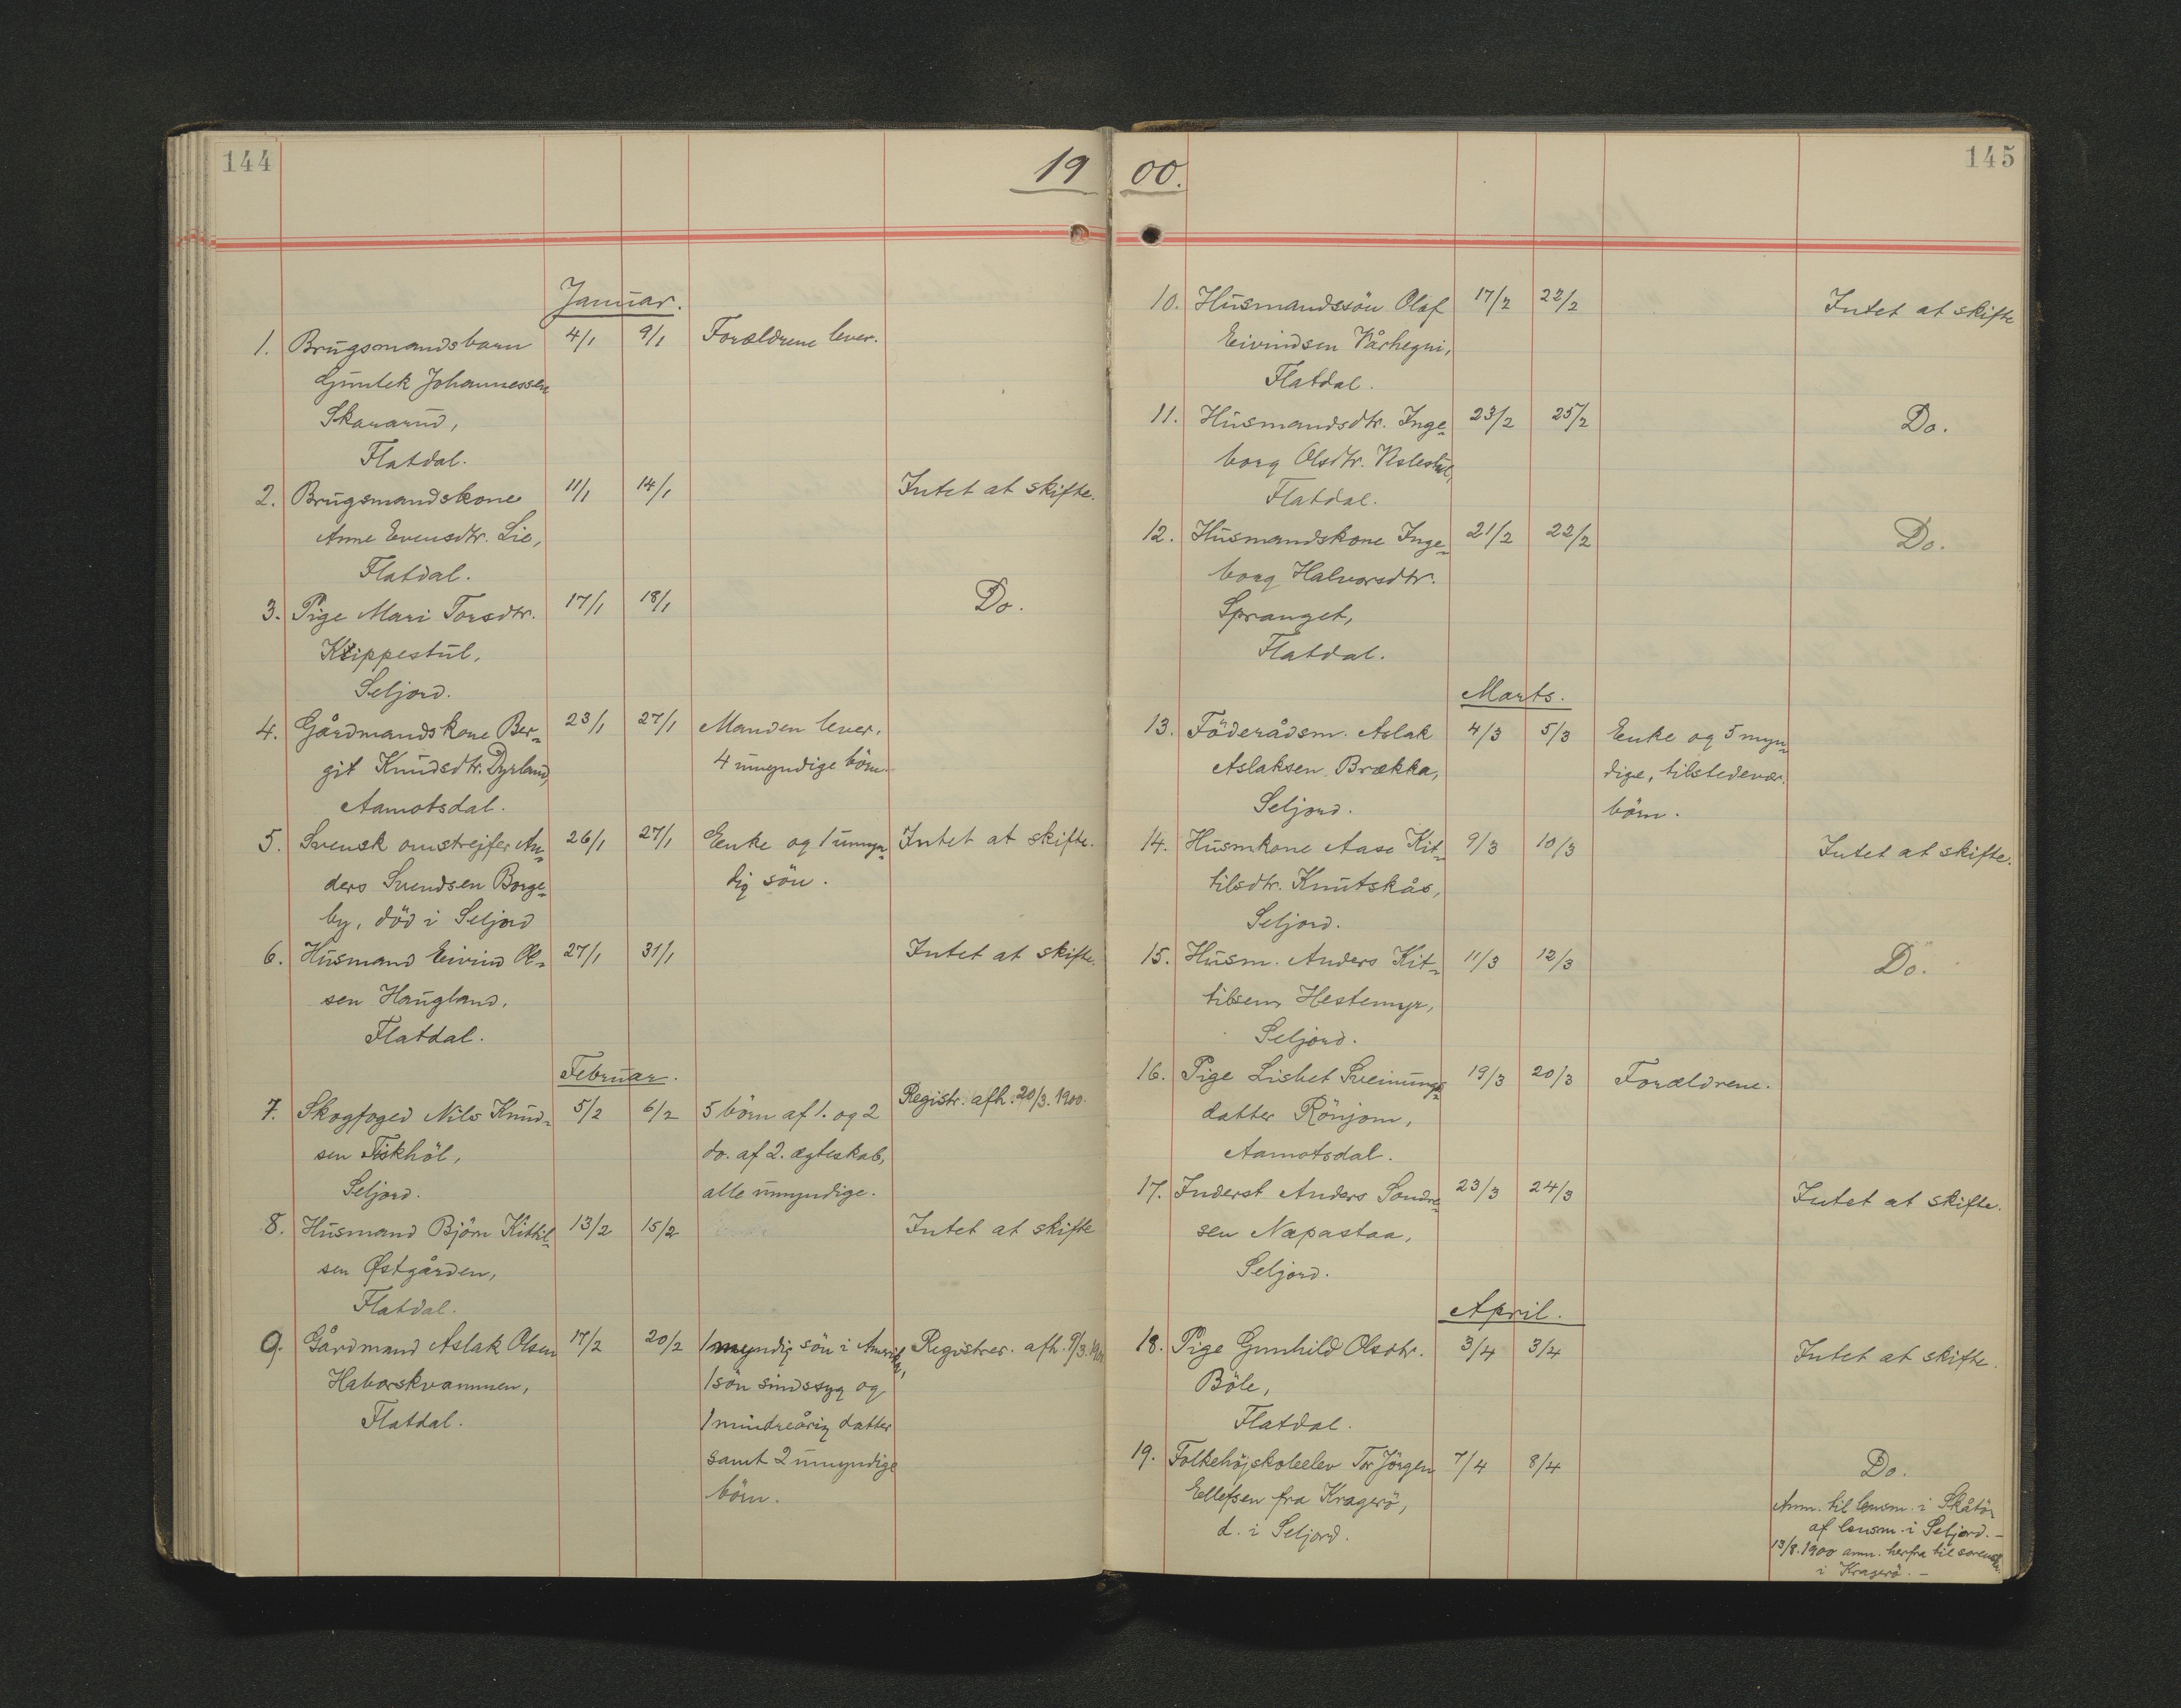 144
19
Januar.
1. Brugsmandsbarn 4/1 9/1 Forældrene lever.
Gunlek Johannessen
Skararud,
Flatdal.
2. Brugsmandskone 11/1 14/1 Intet at skifte.
Anne Evensdtr. Lie,
Flatdal.
3. Pige Mari Torsdtr. 17/1 18/1 Do.
Klippestul,
Seljord.
4. Gårdmandskone Ber- 23/1 27/1 Manden lever.
git Knudsdtr. Dyrland, 4 umyndige börn.
Aamotsdal.
5. Svensk omstrejfer An- 26/1 27/1 Enke og 1 umyn- Intet at skifte.
ders Svendsen Borge- dig sön.
by, död i Seljord
6. Husmand Eivind Ol- 27/1 31/1 Intet at skifte.
sen Haugland,
Flatdal.
Februar.
7. Skogfoged Nils Knud- 5/2 6/2 5 börn af 1. og 2 Registr. afh. 20/3. 1900.
sen Fiskhöl, do. af 2. ægteskab,
Seljord. alle umyndige.
8. Husmand Björn Kittil- 13/2 15/2 Intet at skifte
sen Østgården,
Flatdal.
9. Gårdmand Aslak Olsen 17/2 20/2 1 myndig sön i Amerika, Registrer. afh. 9/3. 1900
Havorskvammen, 1 sön sindssyg og
Flatdal. 1 mindreårig datter
samt 2 umyndige
börn.
00.
145
10. Husmandssön Olaf 17/2 22/2 Intet at skifte
Eivindsen Vårhegni,
Flatdal.
11. Husmandsdtr. Inge- 23/2 25/2 Do.
borg Olsdtr. Veslestul,
Flatdal.
12. Husmandskone Inge- 21/2 22/2 Do.
borg Halvorsdtr.
Spranget,
Flatdal.
Marts.
13. Föderådsm. Aslak 4/3 5/3 Enke og 5 myn-
Aslaksen Brækka, dige, tilstedevær.
Seljord. börn.
14. Husmkone Aase Kit- 9/3 10/3 Intet at skifte.
tilsdtr. Knutskås,
Seljord.
15. Husm. Anders Kit- 11/3 12/3 Do.
tilsen Hestemyr,
Seljord.
16. Pige Lisbet Sveinungs- 19/3 20/3 Forældrene.
datter Rönjom,
Aamotsdal.
17. Inderst Anders Sondre- 23/3 24/3 Intet at skifte.
sen Napastaa,
Seljord.
April.
18. Pige Gunhild Olsdtr. 3/4 3/4 Intet at skifte.
Böle,
Flatdal.
19. Folkehöjskoleelev Tor Jörgen 7/4 8/4 Do.
Ellefsen fra Kragerö, Anm. til lensm. i Skåtö
d. i Seljord. af lensm. i Seljord. –
13/8. 1900 anm. herfra til sorenskr.
i Kragerö. –